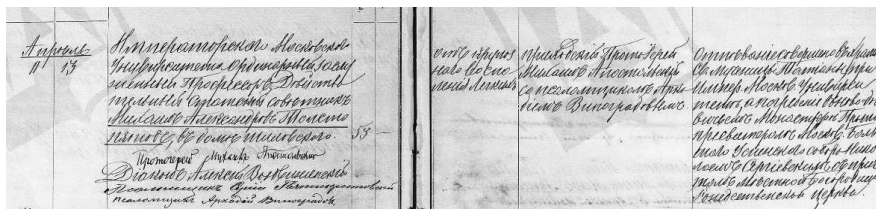 Апрель
11 13
Императорскаго Московскаго
Университета Ординарный Заслу
женный Профессоръ Действи
тельный Статскiй советникъ
Михаилъ Александровъ Толсто
пятовъ, въ доме
53 —
Протоiерей Михаилъ Апостольскiй
Дiаконъ Алексiй
Псаломщикъ
псаломщикъ Аркадiй Виноградовъ
отъ крупоз
наго воспа
ленiя легкихъ
приходскiй Протоiерей
Михаилъ Апостольскiй
съ псаломщикомъ Арка
дiемъ Виноградовымъ
Отпеванiе совершено въ храме
Св. мученицы Татiаны, при
Импер. Москов. Универси
тете, а погребенiе въ Ново-де
вичьемъ Монастыре Прото
пресвитеромъ Москов. Боль
шого Успенскаго собора Нико
лаемъ Сергiевскимъ съ при
чтомъ местной Богородице
Рождественской Церкви.